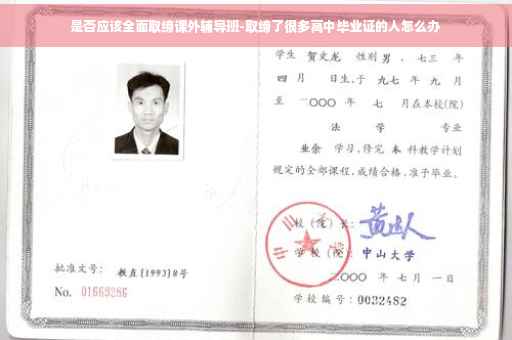 是否应该全面取缔课外辅导班-取缔了很多高中毕业证的人怎么办
学生 贺文龙 性别 男 、七三 年
四 月 日生,于 九七 年 九 月
至 二〇〇〇 年 七 月在本校(院)
法 学 专业
业余 学习,修完 本 科教学计划
规定的全部课程,成绩合格,准予毕业。
校(院)长:
学 校(院): 中山大学
二〇〇〇 年 七 月 一 日
学校编号: 0032482
批准文号: 教直[1993]8号
No. 01669286